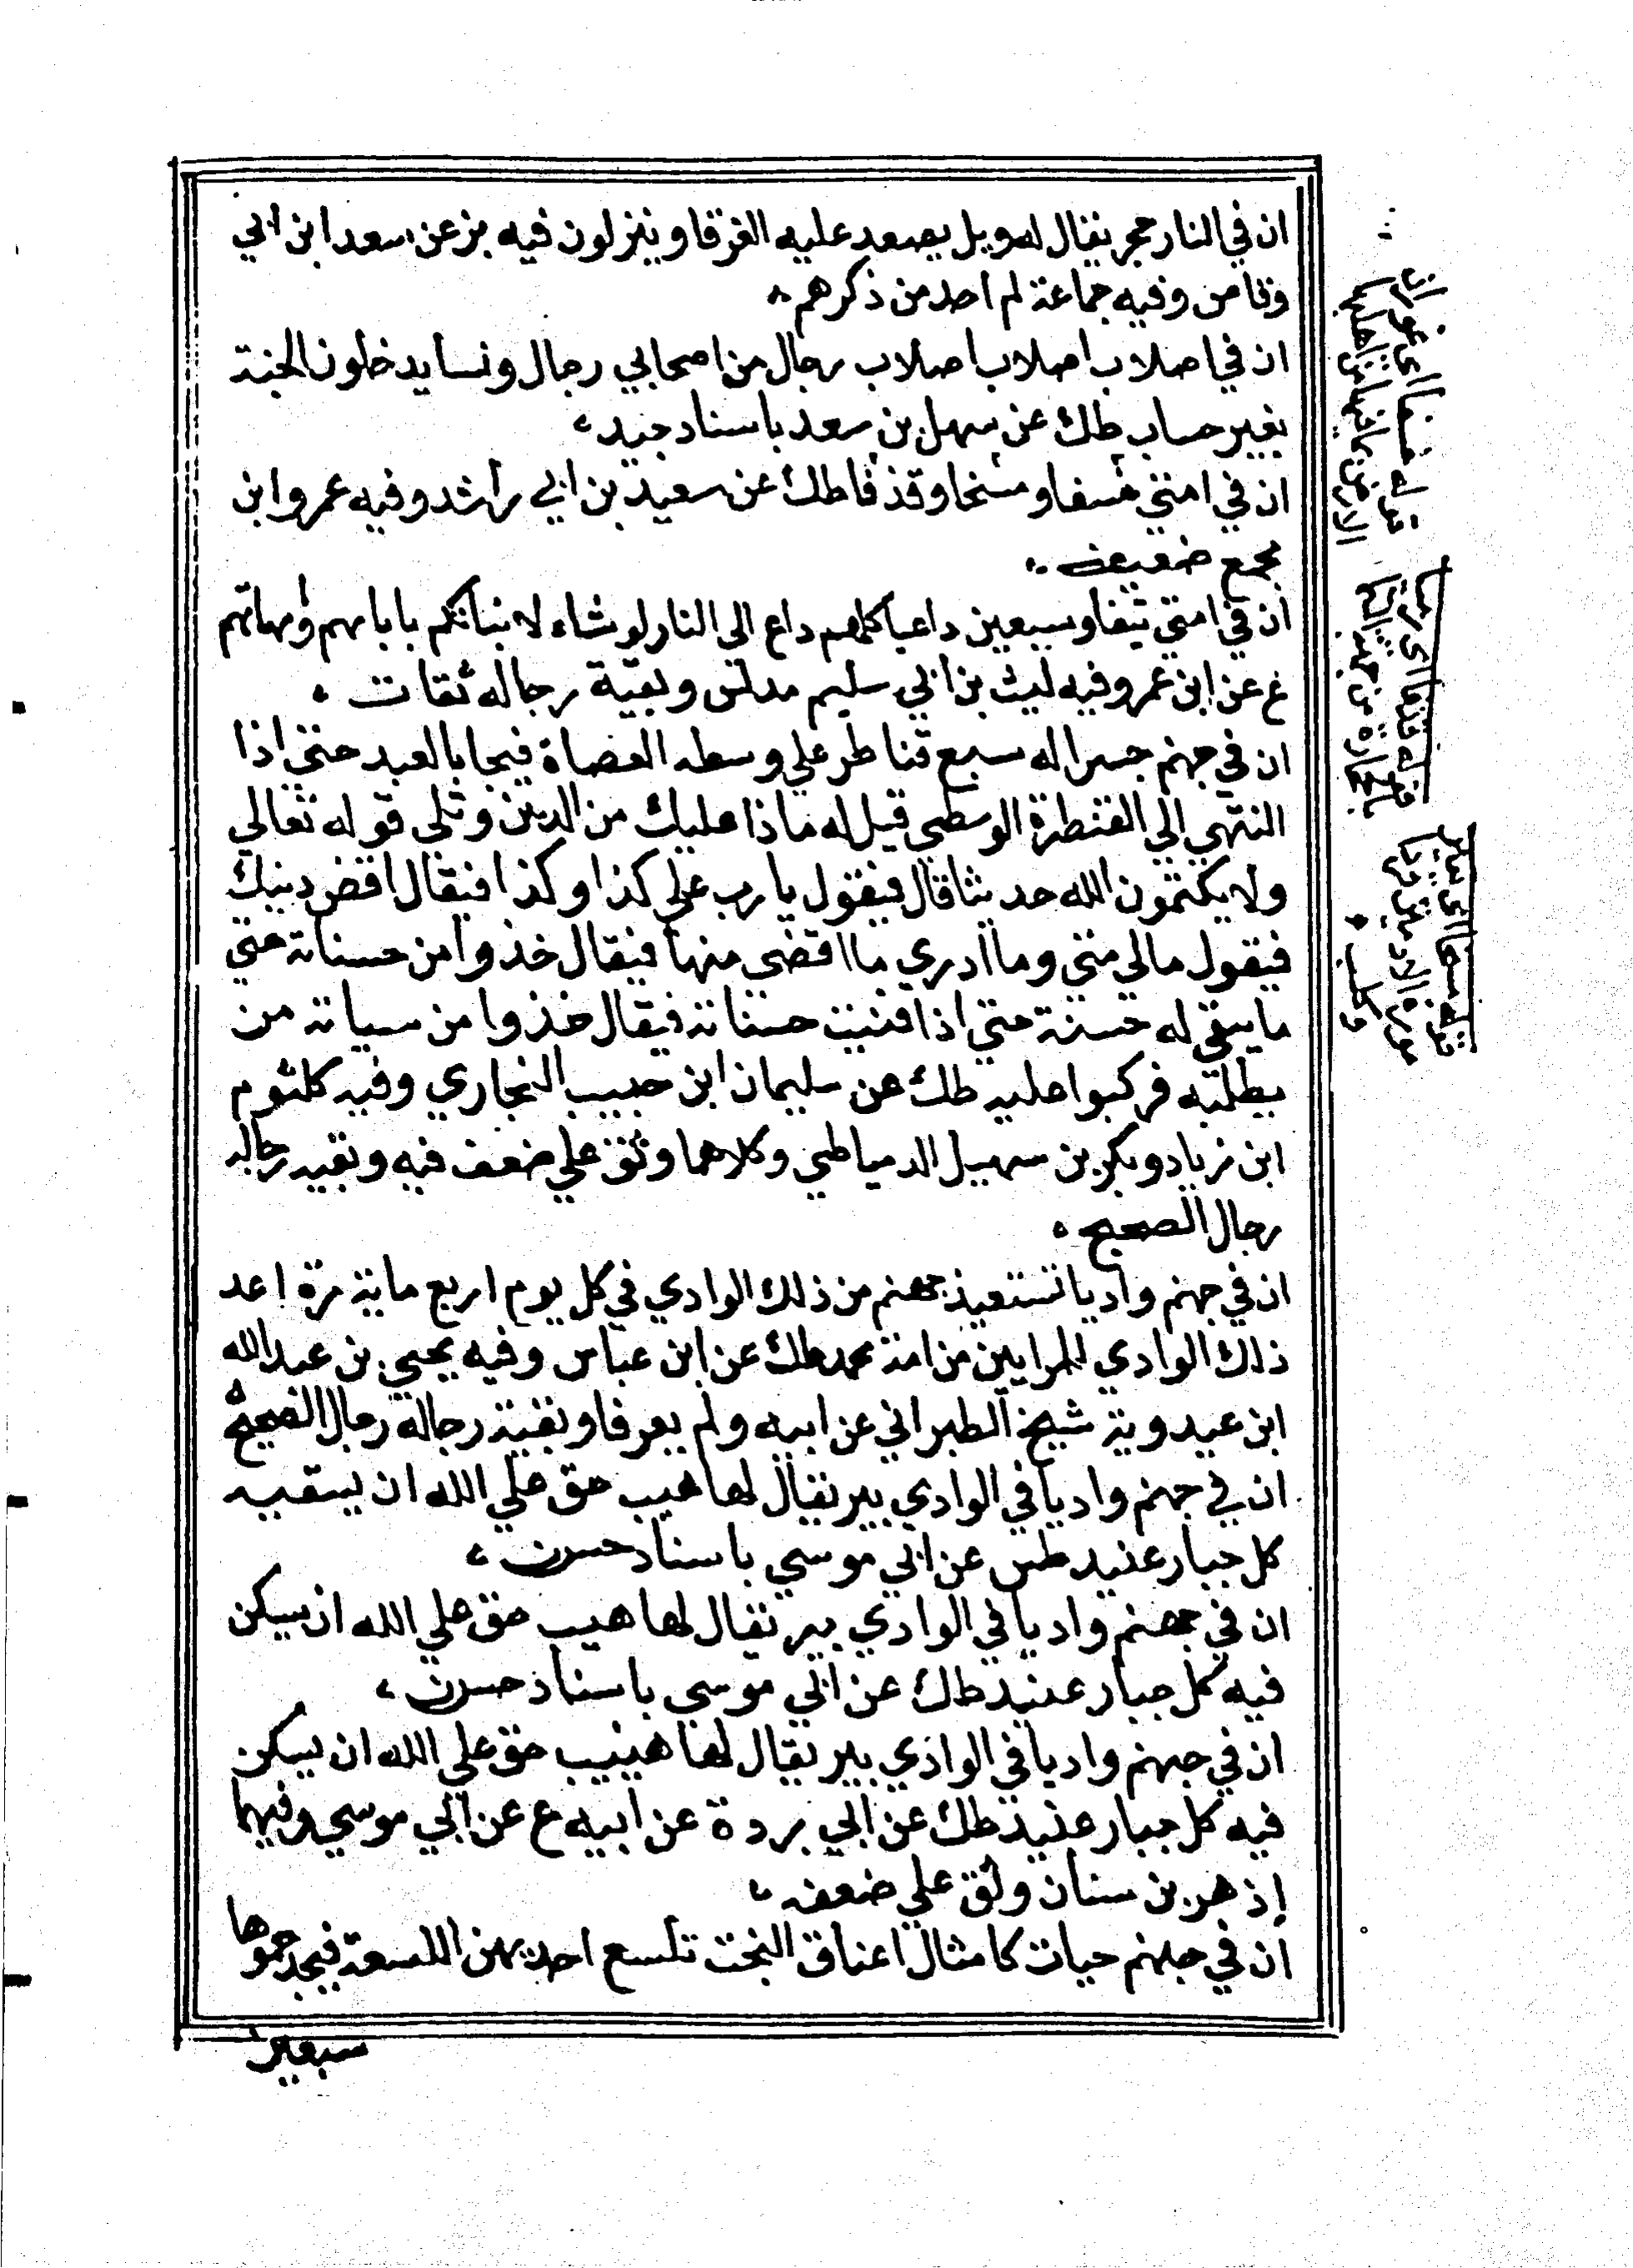 ان في النار حجر يقال له ويل يصعد عليه العرفا وينزلون فيه بز عن سعد ابن ابي
وقاص وفيه جماعة لم اجد من ذكرهم
ان في اصلاب اصلاب اصلاب رجال من اصحابي رجال ونسا يدخلون الجنة
بغير حساب طك عن سهل بن سعد باسناد جيد
ان في امتي خسفا ومسخا وقذفا طك عن سعيد بن ابي راشد وفيه عمرو ابن
مجمع ضعيف
ان في امتي نيفا وسبعين داعيا كلهم داع الى النار لو شاء لانبأتكم بابايهم وامهاتهم
ع عن ابن عمر وفيه ليث بن ابي سليم مدلس وبقية رجاله ثقات
ان في جهنم جسرا له سبع قناطر علي وسطه العصاة فيجا بالعبد حتي اذا
انتهي الي القنطرة الوسطي قيل له ماذا عليك من الدين وتلى قوله تعالي
ولا يكتمون الله حديثا قال فيقول يا رب علي كذا وكذا فيقال اقض دينك
فيقول مالي شي وما ادري ما اقضي منها فيقال خذوا من حسناته حتي
ما يبقي له حسنة حتي اذا فنيت حسناته فيقال خذوا من سياته من
يطلبه فركبوا عليه طك عن سليمان ابن حبيب النجاري وفيه كلثوم
ابن زياد وبكر بن سهيل الدمياطي وكلاهما وثق علي ضعف فيه وبقيه رجاله
رجال الصحيح
ان في جهنم واديا تستعيذ جهنم من ذلك الوادي في كل يوم اربع ماية مرة اعد
ذلك الوادي للمرايين من امة محمد طك عن ابن عباس وفيه يحيي بن عبد الله
ابن عبدوية شيخ الطبراني عن ابيه ولم يعرفا وبقية رجاله رجال الصحيح
ان في جهنم واديا في الوادي بير يقال لها هبهب حق علي الله ان يسقيه
كل جبار عنيد طس عن ابي موسي باسناد حسن
ان في جهنم واديا في الوادي بير يقال لها هبهب حق علي الله ان يسكن
فيه كل جبار عنيد طك عن ابي موسي باسناد حسن
ان في جهنم واديا في الوادي بير يقال لها هبهب حق علي الله ان يسكن
فيه كل جبار عنيد طك عن ابي بردة عن ابيه ع عن ابي موسي وفيهما
ازهر بن سنان وثق علي ضعفه
ان في جهنم حيات كامثال اعناق البخت تلسع احديهن اللسعة فيجد حموها
سبعين